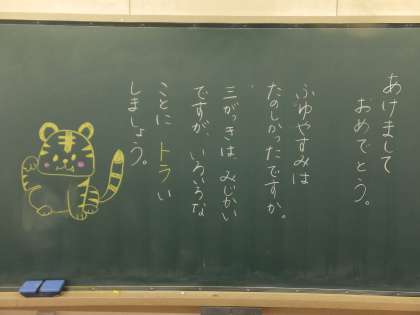 あけまして
おめでとう。
ふゆやすみは
たのしかったですか。
三がっきは、みじかい
ですが、いろいろな
ことに トライ
しましょう。